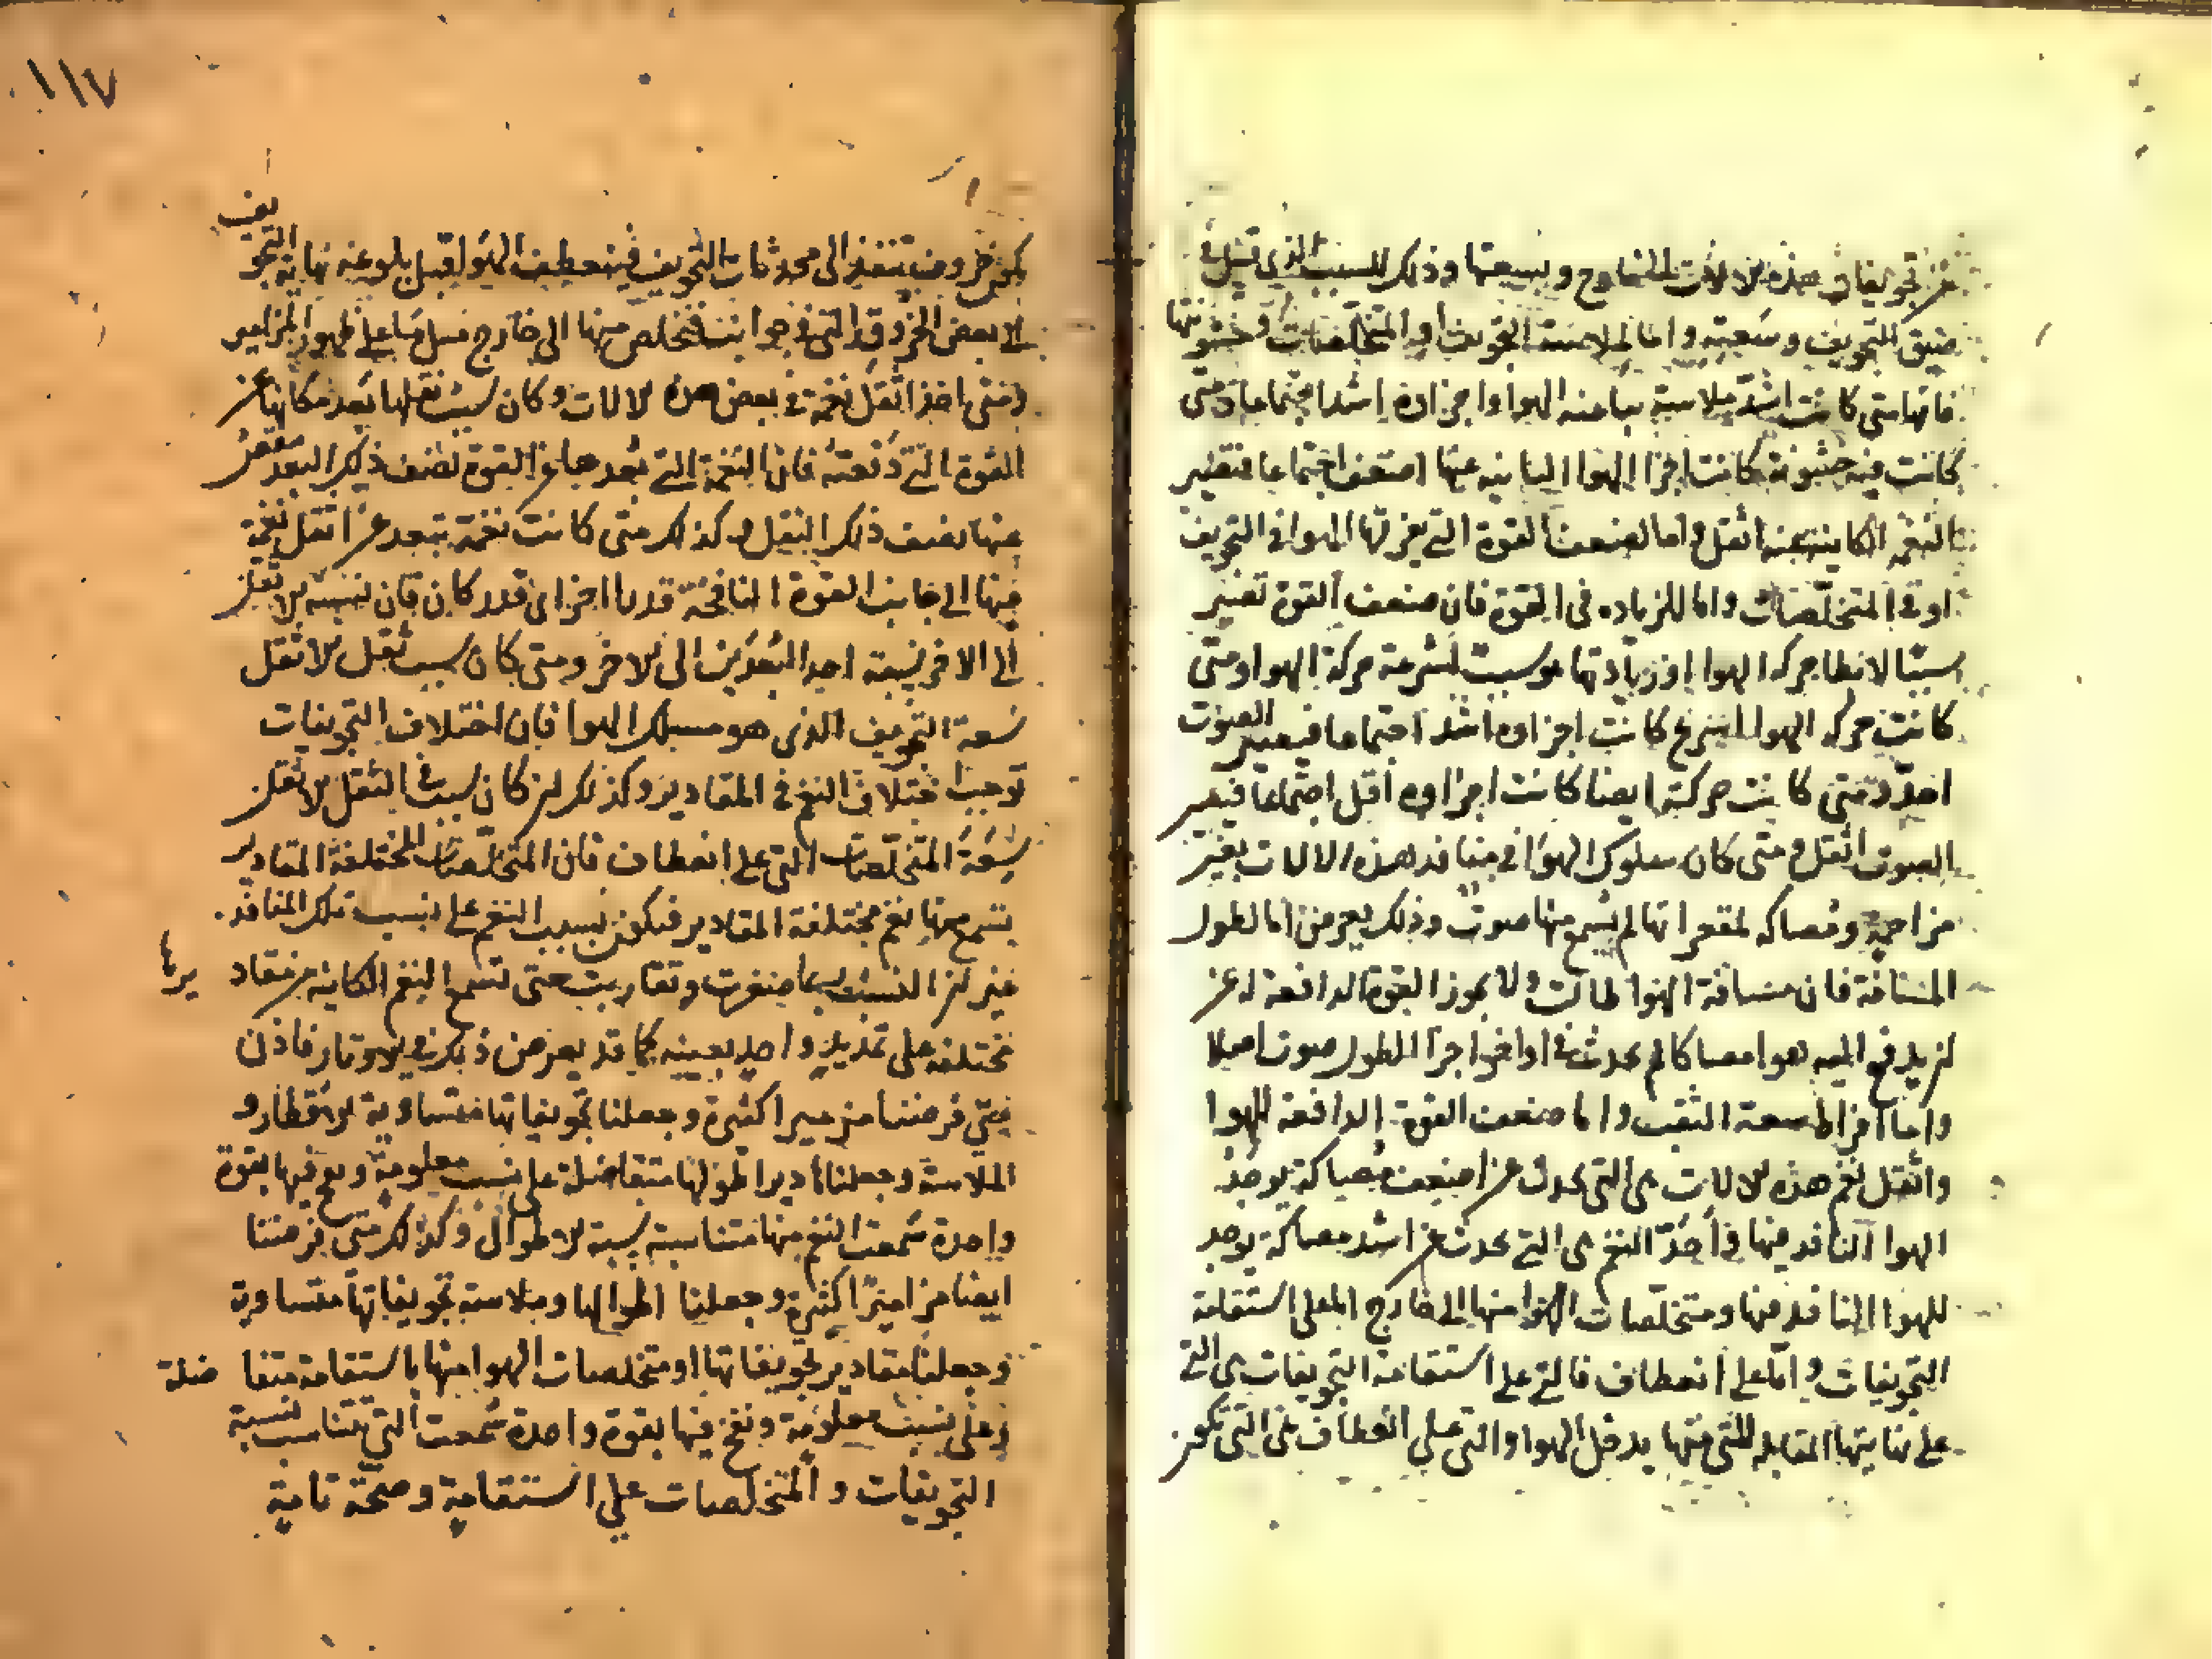 عن تجويفات هذه الالات المخارج وبسعتها وذلك للسبب الذي قيل في
ضيق التجويف وسعته واما لملاسة التجويف او المتخلصات وخشونتها
فانها متى كانت اشد ملاسة ساعته الهوا واجزاوه اشد اجتماعا ومتى
كانت فيه خشونة كانت اجزا الهوا النابية عنها اضعف اجتماعا فتصير
النغم الكاينة عنه اثقل واما لضعف القوة التي يحركها الهوا في التجويف
او في المتخلصات واما للزياده في القوة فان ضعف القوة تصير
سببا لابطا حركة الهوا وزيادتها هو سبب لسرعة حركة الهوا ومتى
كانت حركة الهوا اسرع كانت اجزاوه اشد اجتماعا فيصير الصوت
احد ومتى كانت حركته ابطا كانت اجزاوه اقل اجتماعا فيصير
الصوت اثقل ومتى كان سلوك الهوا في منافذ هذه الالات بغير
مزاحمة ومصاكه لمقعراتها لم يسمع منها صوت وذلك يعرض اما لطول
المسافة فان مسافة الهوا طالت ولا يجوز القوة الدافعة له عن
ان يدفع اليه هوا مصاكا لم يحدث في اواخر اجزا الطول صوت اصلا
واما افراط سعة الثقب واما ضعف القوة الدافعة للهوا
واثقل نغم هذه الالات هي التي تحدث عن اضعف مصاكة يوجد
الهوا النافذ فيها واحد النغم هي التي تحدث عن اشد مصاكة يوجد
للهوا النافذ فيها ومتخلصات الهوا منها الى خارج اما على استقامة
التجويفات واما على انعطاف فالتي على استقامة التجويفات هي التي
على نهايتها المقابلة للتي منها يدخل الهوا والتي على انعطاف هي التي تكون
تكون خروق ينفذ الى محدثات التجويف فينعطف الهوا قبل بلوغه نهاية التجويف
الى بعض الخروق التي في جوانبه فتخلص منها الى خارج مثل ما على ظهور المزامير
ومتى اخذ اثقل نغمة في بعض هذه الالات وكان سبب ثقلها بعد مكانها عن
القوة التي دفعته فان النغمة التي بعدها عن القوة نصف ذلك البعد
عنها نصف ذلك الثقل وكذلك متى كانت نغمة تبعد عن اثقل نغمة
فيها الى جانب القوة النافخة قدرا اجزا اي قدر كان فان نسبة الاثقل
الى الاخر نسبة احد البعدين الى الاخر ومتى كان سبب ثقل الاثقل
سعة التجويف الذي هو مسلك الهوا فان اختلاف التجويفات
توجب اختلاف النغم في المقادير وكذلك ان كان سبب في الثقل الاثقل
سعة المتخلصات التي على انعطاف فان المتخلصات المختلفة المقادير
يسمع منها نغم مختلفة المقادير فتكون نسب النغم على نسب تلك المنافذ
غير ان النسب ربما صغرت وتقاربت حتى تسمع النغم الكاينة من مقاديرها
مختلفة على تمديد واحد بعينه كما قد يعرض ذلك في الاوتار فاذن
متى فرضنا مزاميرا كثيرة وجعلنا تجويفاتها متساوية الاقطار و
الملاسة وجعلنا مقادير اطوالها متفاضلة على نسب معلومة ونفخ فيها بقوة
واحدة سمعت النغم منها متناسبة نسبة الاطوال وكذلك متى فرضنا
ايضا مزاميرا كثيرة وجعلنا اطوالها وملاسة تجويفاتها متساوية
وجعلنا مقادير تجويفاتها او متخلصات الهوا منها باستقامة متفاضلة
وعلى نسب معلومة ونفخ فيها بقوة واحدة سمعت التي تتناسب نسبة
التجويفات والمتخلصات على استقامة وصحة تامة
١١٧